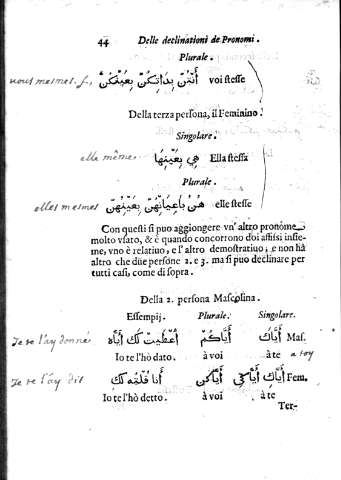 44 Delle declinationi de Pronomi.
Plurale.
vous mesmes. f., أَنْتُنَّ بِذَاتِكُنَّ بِعَيْنِكُنَّ voi stesse
Della terza persona, il Feminino.
Singolare.
elle même. هِيَ بِعَيْنِهَا Ella stessa
Plurale.
elles mesmes هُنَّ بِأَعْيَانِهُنَّ بِعَيْنِهُنَّ elle stesse
Con questi si può aggiongere vn' altro pronome
molto vsato, & è quando concorrono doi affissi insie-
me, vno è relatiuo, e l' altro demostratiuo; e non hà
altro che due persone 2. e 3. ma si puol declinare per
tutti casi, come di sopra.
Della 2. persona Mascolina.
Essempij. Plurale. Singolare.
Je te l'ay donné أَعْطَيْتُ لَكَ أَيَّاهُ أَيَّاكُمْ أَيَّاكَ Mas.
Io te l'hò dato. à voi à te a toy
Je te l'ay dit أَنَا قُلْتُهُ لَكِ أَيَّاكُنَّ أَيَّاكِ أَيَّاكِي Fem.
Io te l'hò detto. à voi à te
Ter-